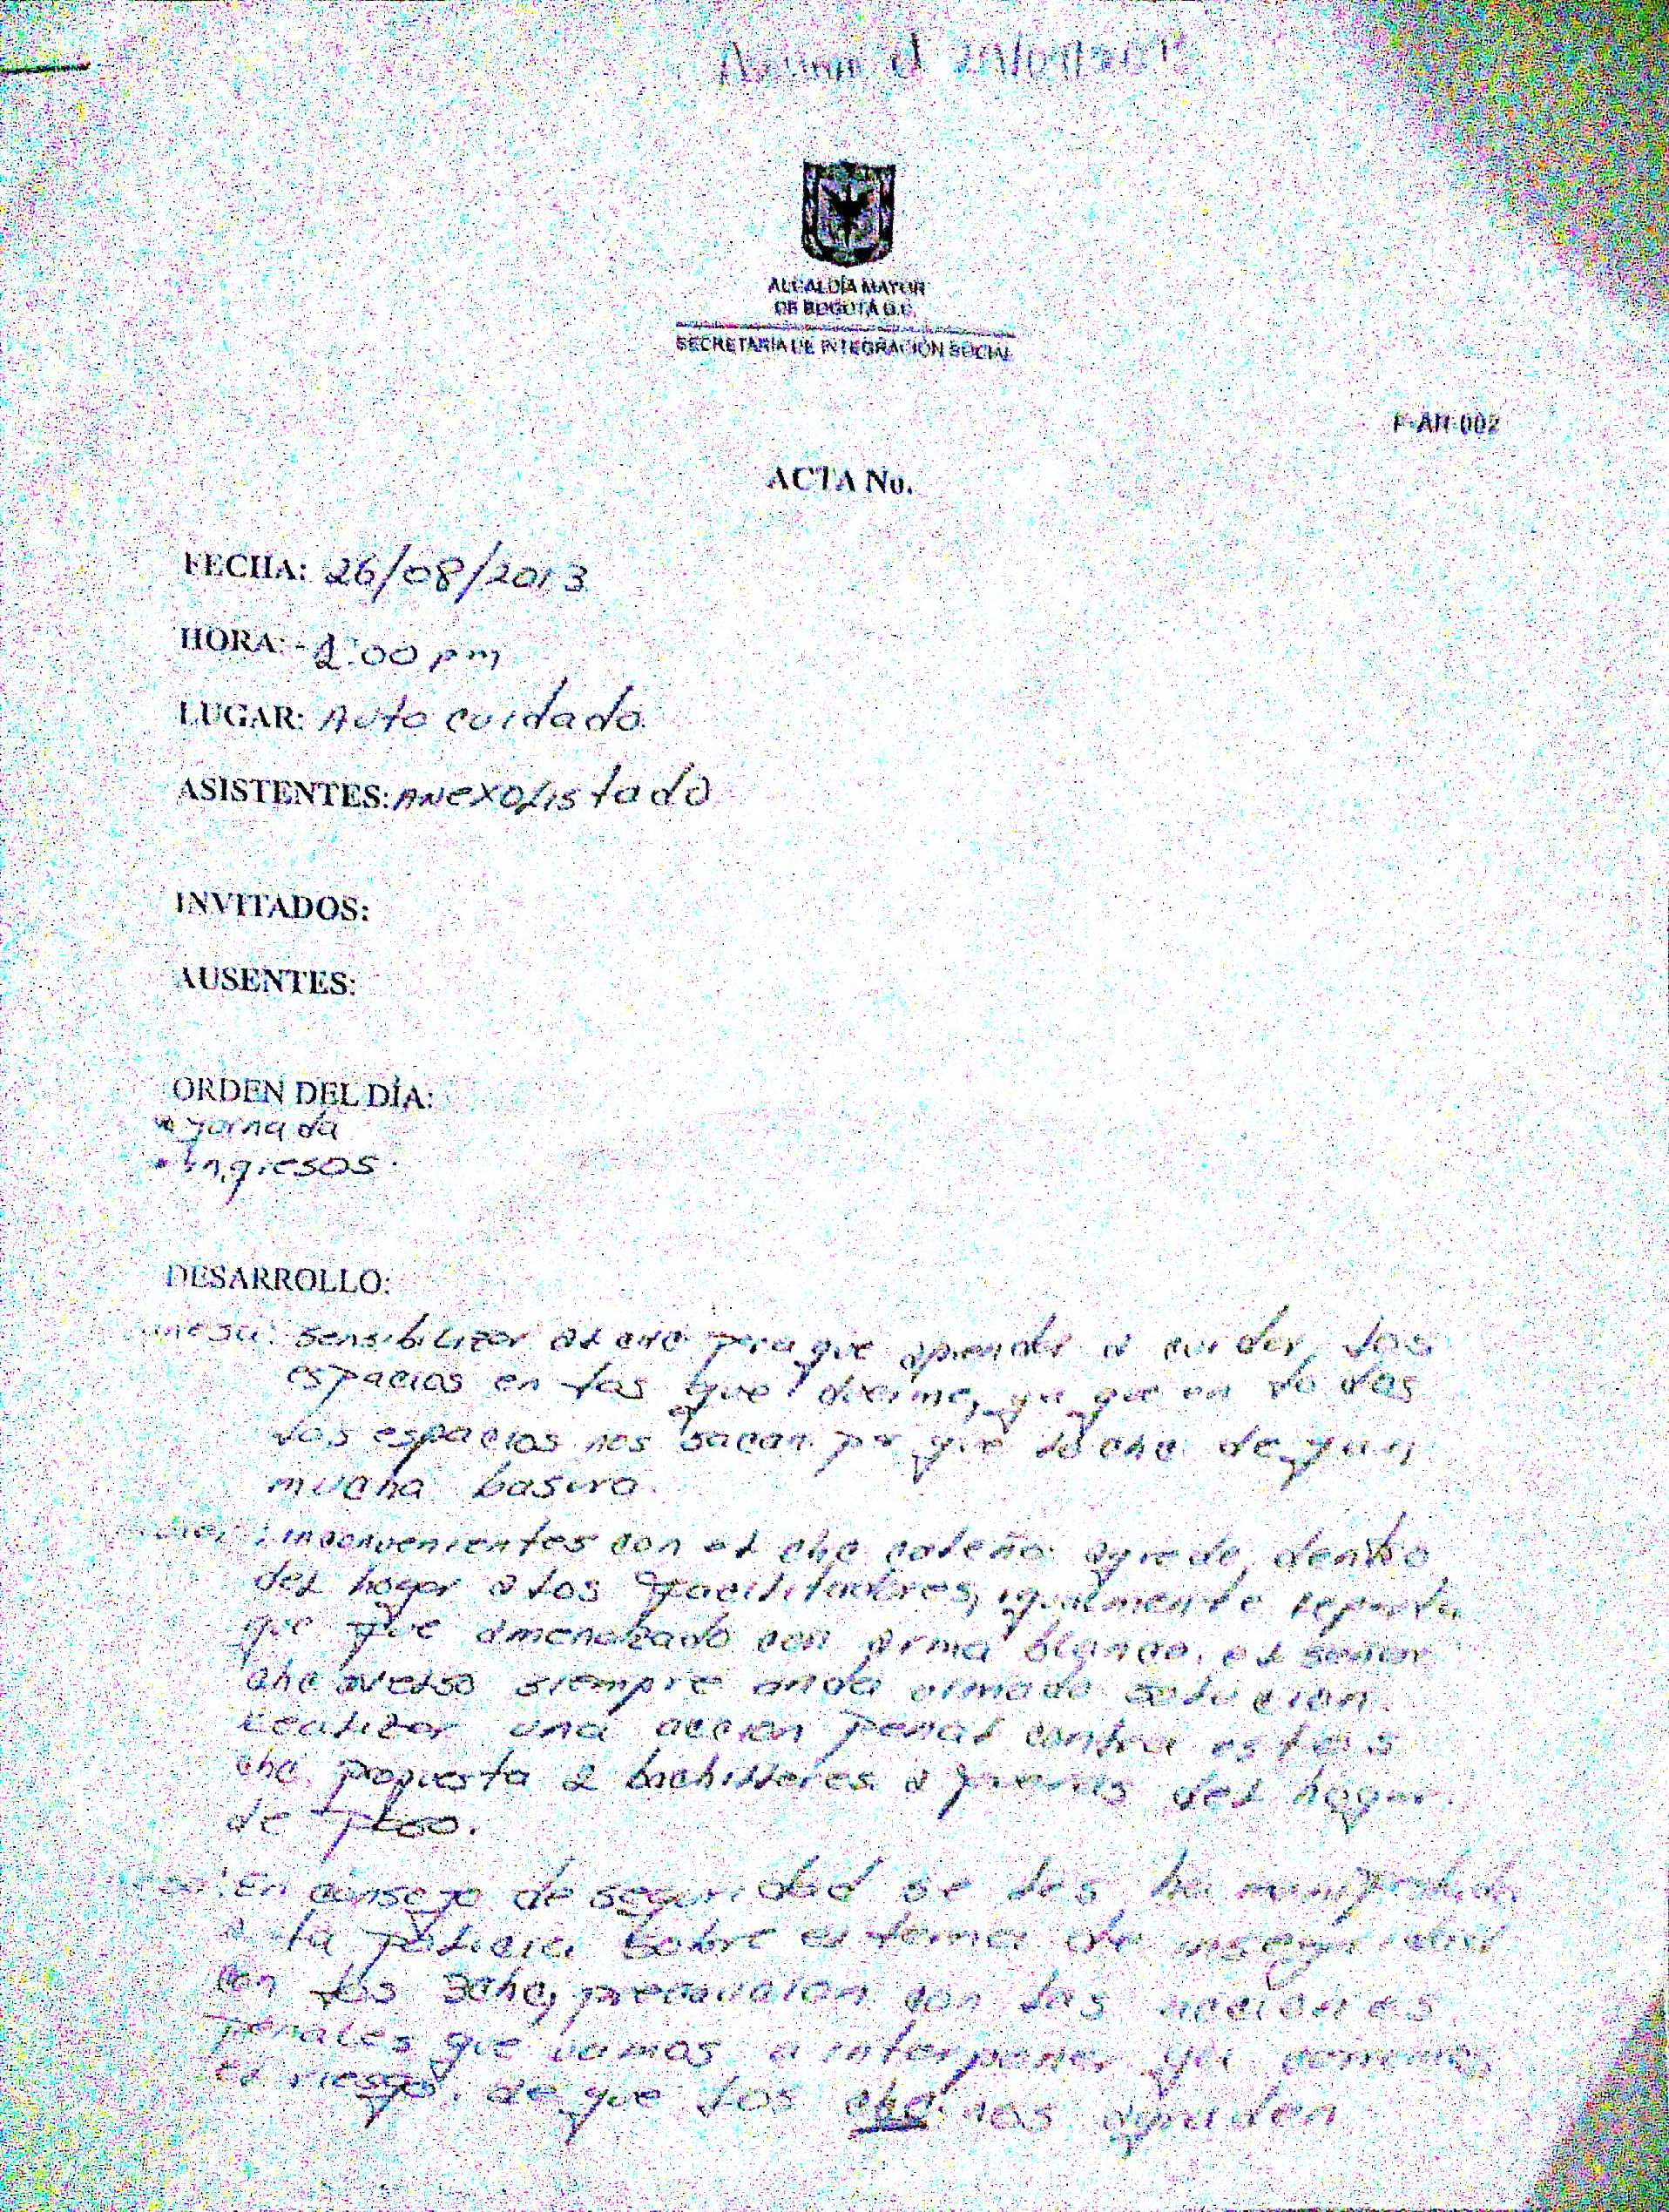 ALCALDÍA MAYOR
DE BOGOTÁ D.C.
SECRETARIA DE INTEGRACIÓN SOCIAL
F-AR-002
ACTA No.
FECHA: 26/08/2013
HORA: 2:00 pm
LUGAR: Auto cuidado
ASISTENTES: Anexo listado
INVITADOS:
AUSENTES:
ORDEN DEL DÍA:
jornada
Ingresos.
DESARROLLO:
sensibilizar al chc para que aprenda a cuidar los
espacios en los que duerme, ya que en todos
los espacios nos sacan por que lo chc dejan
mucha basura.
inconvenientes con el chc caleño agrede dentro
del hogar a los facilitadores, igualmente reporta
que fue amenazado con arma blanca, el señor
chc siempre anda armado solucion
realizar una accion penal contra estos
chc propuesta 2 bachilleres a fueras del hogar
de paso.
En consejo de seguridad se les ha manifestado
a la policia sobre el tema de inseguridad
con los chc, precaucion con las acciones
penales que vamos a interponer ya corremos
el riesgo de que los chc nos agredan